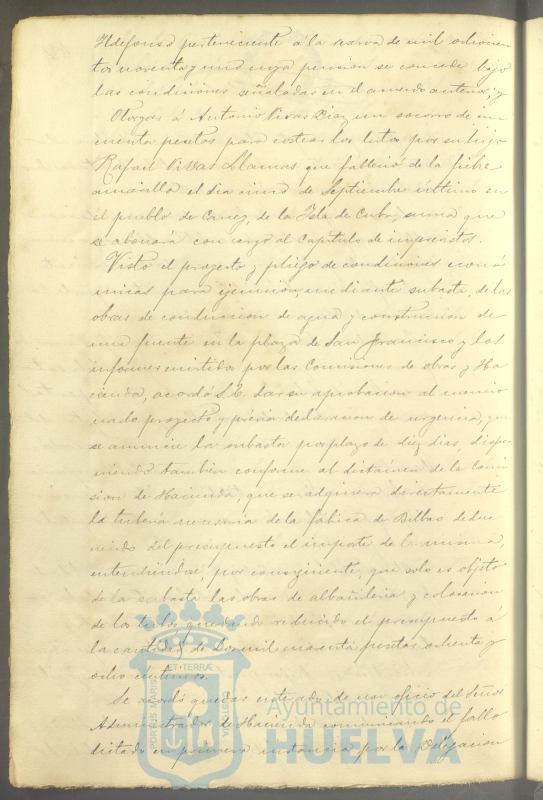 Ildefonso perteneciente á la nave de mil ochocien
tos noventa y uno cuya pension se concede bajo
las condiciones señaladas en el acuerdo anterior; y
Otorgar á Antonio Vivas Diaz un socorro de cin
cuenta pesetas para costear los lutos por su hijo
Rafael Vivas Llamas que falleció de la fiebre
amarilla el dia nueve de Septiembre último en
el pueblo de Caney, de la Isla de Cuba, suma que
se abonará con cargo al Capitulo de imprevistos.
Visto el proyecto y pliego de condiciones econó
micas para ejecucion, mediante subasta, de las
obras de conduccion de agua y construccion de
una fuente en la plaza de San Francisco y los
informes emitidos por las Comisiones de obras y Ha
cienda, acordó S.E. dar su aprobacion al mencio
nado proyecto y previa declaracion de urgencia, que
se anuncie la subasta por plazo de diez dias, dispo
niendo tambien conforme al dictámen de la Comi
sion de Hacienda, que se adquiera directamente
la tuberia necesaria de la fábrica de Bilbao dedu
ciendo del presupuesto el importe de la misma,
entendiéndose, por consiguiente, que solo es objeto
de la subasta las obras de albañileria y colocacion
de los tubos quedando reducido el presupuesto á
la cantidad de dos mil pesetas ochenta y
ocho céntimos.
Se acordó quedar enterado de un oficio del Señor
Administrador de Hacienda comunicando el fallo
dictado en primera instancia por la Delegacion
PORTUS MARIS ET TERRÆ
Ayuntamiento de
HUELVA